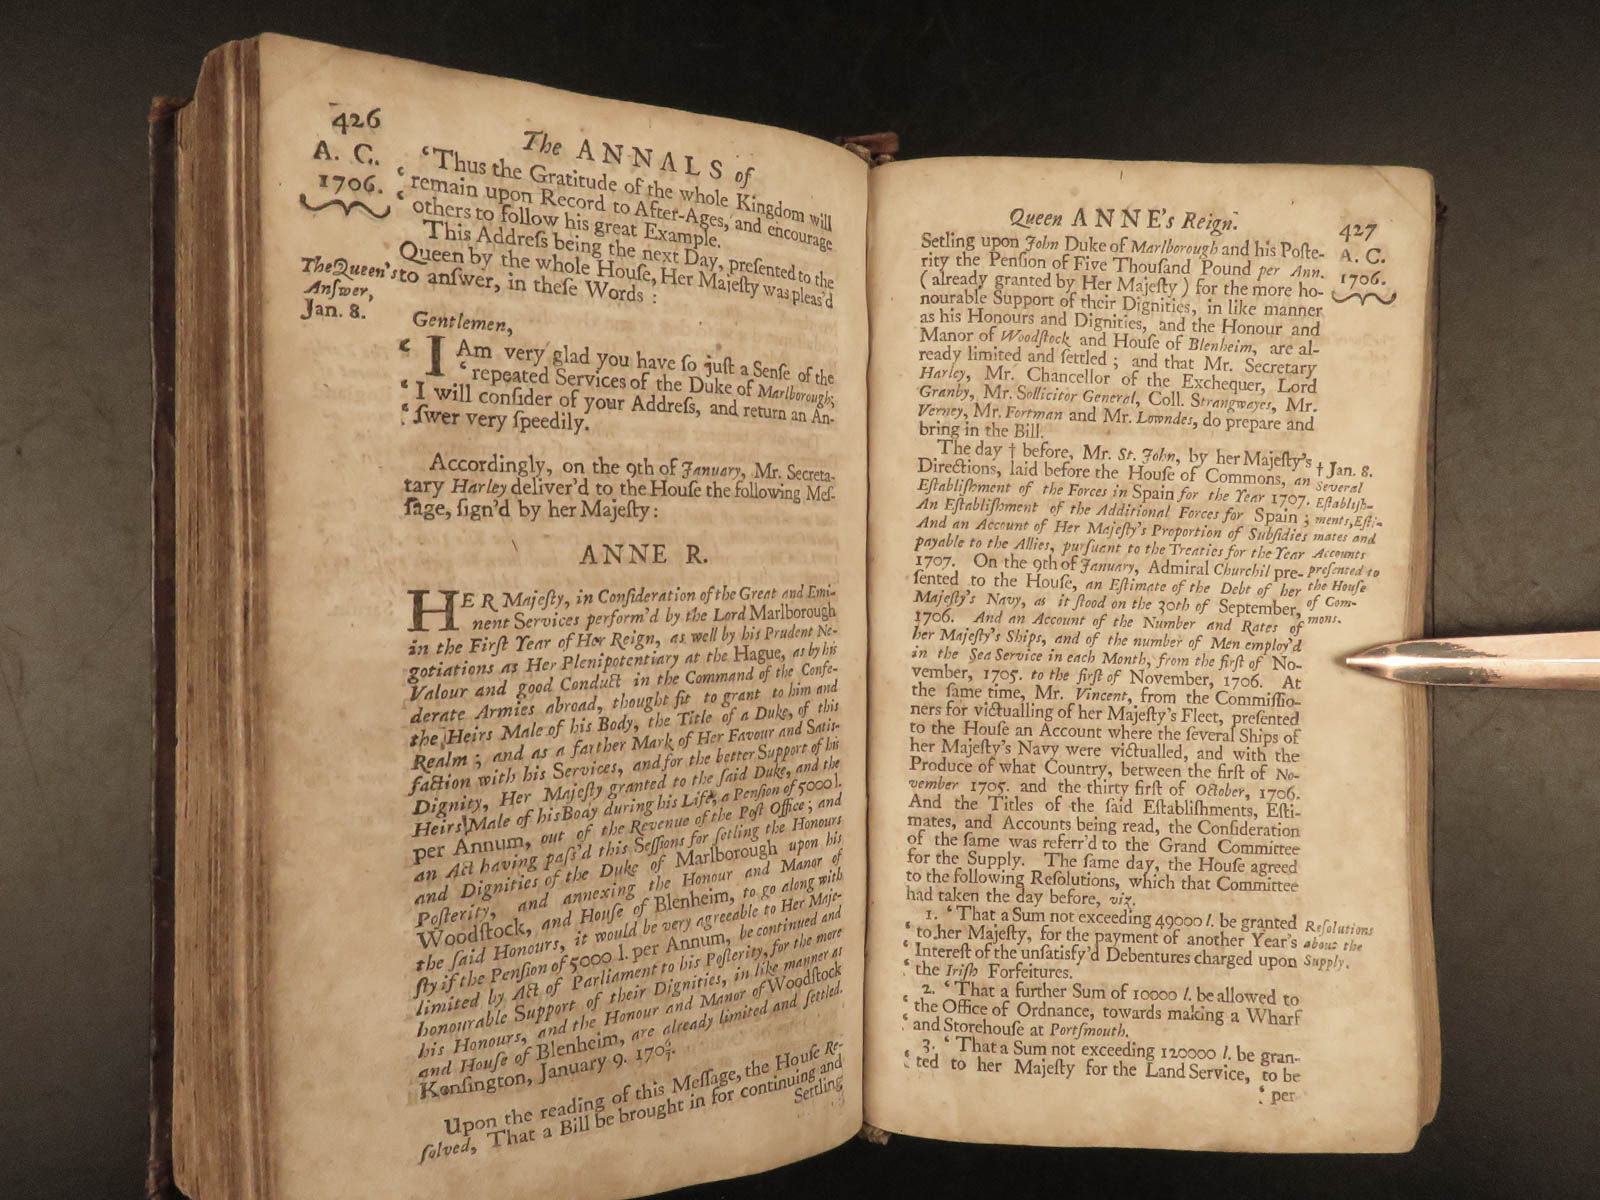 426
The ANNALS of
A. C.
1706.
‘Thus the Gratitude of the whole Kingdom will
‘ remain upon Record to After-Ages, and encourage
‘ others to follow his great Example.
This Addreſs being the next Day, preſented to the
Queen by the whole Houſe, Her Majeſty was pleas'd
to anſwer, in theſe Words :
The Queen's
Anſwer,
Jan. 8.
Gentlemen,
‘ I Am very glad you have ſo juſt a Senſe of the
‘ repeated Services of the Duke of Marlborough;
‘ I will conſider of your Addreſs, and return an An-
‘ ſwer very ſpeedily.
Accordingly, on the 9th of January, Mr. Secreta-
tary Harley deliver'd to the Houſe the following Meſ-
ſage, ſign'd by her Majeſty:
ANNE R.
HER Majeſty, in Conſideration of the Great and Emi-
nent Services perform'd by the Lord Marlborough
in the Firſt Year of Her Reign, as well by his Prudent Ne-
gotiations as Her Plenipotentiary at the Hague, as by his
Valour and good Conduct in the Command of the Confe-
derate Armies abroad, thought fit to grant to him and
the Heirs Male of his Body, the Title of a Duke, of this
Realm ; and as a farther Mark of Her Favour and Satiſ-
faction with his Services, and for the better Support of his
Dignity, Her Majeſty granted to the ſaid Duke, and the
Heirs Male of his Body during his Life, a Penſion of 5000 l.
per Annum, out of the Revenue of the Poſt Office ; and
an Act having paſs'd this Seſſions for ſetling the Honours
and Dignities of the Duke of Marlborough upon his
Poſterity, and annexing the Honour and Manor of
Woodſtock, and Houſe of Blenheim, to go along with
the ſaid Honours, it would be very agreeable to Her Maje-
ſty if the Penſion of 5000 l. per Annum, be continued and
limited by Act of Parliament to his Poſterity, for the more
honourable Support of their Dignities, in like manner as
his Honours, and the Honour and Manor of Woodſtock
and Houſe of Blenheim, are already limited and ſettled.
Kenſington, January 9. 170 6/7.
Upon the reading of this Meſſage, the Houſe Re-
ſolved, That a Bill be brought in for continuing and
Settling
Queen ANNE's Reign.
427
A. C.
1706.
Setling upon John Duke of Marlborough and his Poſte-
rity the Penſion of Five Thouſand Pound per Ann.
( already granted by Her Majeſty ) for the more ho-
nourable Support of their Dignities, in like manner
as his Honours and Dignities, and the Honour and
Manor of Woodſtock and Houſe of Blenheim, are al-
ready limited and ſettled ; and that Mr. Secretary
Harley, Mr. Chancellor of the Exchequer, Lord
Granby, Mr. Sollicitor General, Coll. Strangwayes, Mr.
Verney, Mr. Fortman and Mr. Lowndes, do prepare and
bring in the Bill.
The day † before, Mr. St. John, by her Majeſty's
Directions, laid before the Houſe of Commons, an
Eſtabliſhment of the Forces in Spain for the Year 1707.
An Eſtabliſhment of the Additional Forces for Spain ;
And an Account of Her Majeſty's Proportion of Subſidies
payable to the Allies, purſuant to the Treaties for the Year
1707. On the 9th of January, Admiral Churchil pre-
ſented to the Houſe, an Eſtimate of the Debt of her
Majeſty's Navy, as it ſtood on the 30th of September,
1706. And an Account of the Number and Rates of
her Majeſty's Ships, and of the number of Men employ'd
in the Sea Service in each Month, from the firſt of No-
vember, 1705. to the firſt of November, 1706. At
the ſame time, Mr. Vincent, from the Commiſſio-
ners for victualling of her Majeſty's Fleet, preſented
to the Houſe an Account where the ſeveral Ships of
her Majeſty's Navy were victualled, and with the
Produce of what Country, between the firſt of No-
vember 1705. and the thirty firſt of October, 1706.
And the Titles of the ſaid Eſtabliſhments, Eſti-
mates, and Accounts being read, the Conſideration
of the ſame was referr'd to the Grand Committee
for the Supply. The ſame day, the Houſe agreed
to the following Reſolutions, which that Committee
had taken the day before, viz.
† Jan. 8.
Several
Eſtabliſh-
ments, Eſti-
mates and
Accounts
preſented to
the Houſe
of Com-
mons.
1. ‘ That a Sum not exceeding 49000 l. be granted
‘ to her Majeſty, for the payment of another Year's
‘ Intereſt of the unſatisfy'd Debentures charged upon
‘ the Iriſh Forfeitures.
Reſolutions
about the
Supply.
2. ‘ That a further Sum of 10000 l. be allowed to
‘ the Office of Ordnance, towards making a Wharf
‘ and Storehouſe at Portſmouth.
3. ‘ That a Sum not exceeding 120000 l. be gran-
‘ ted to her Majeſty for the Land Service, to be
‘ per